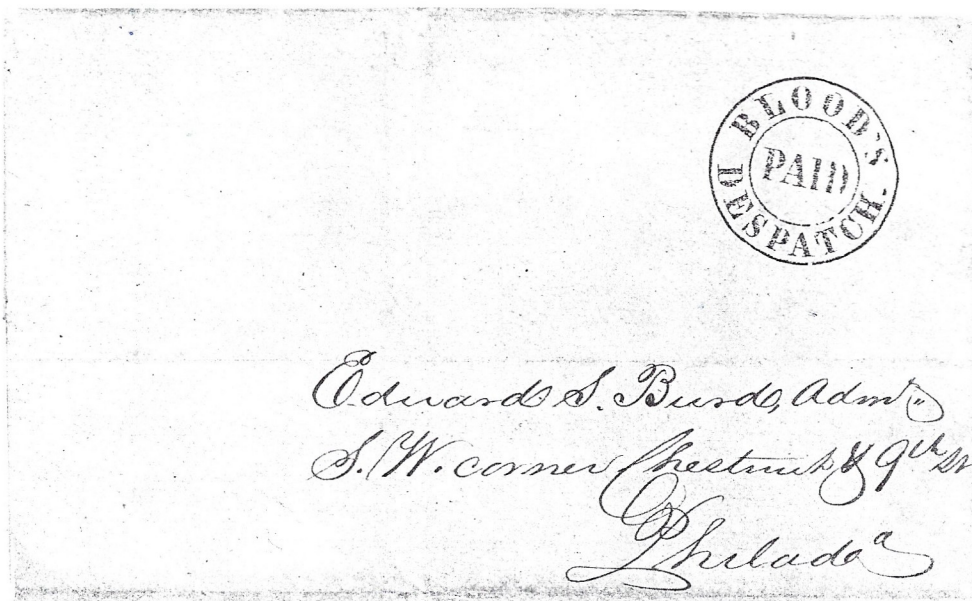 BLOOD'S
PAID
DESPATCH.
Edward S. Burd, Admr.
S. W. corner Chestnut & 9th St
Philada